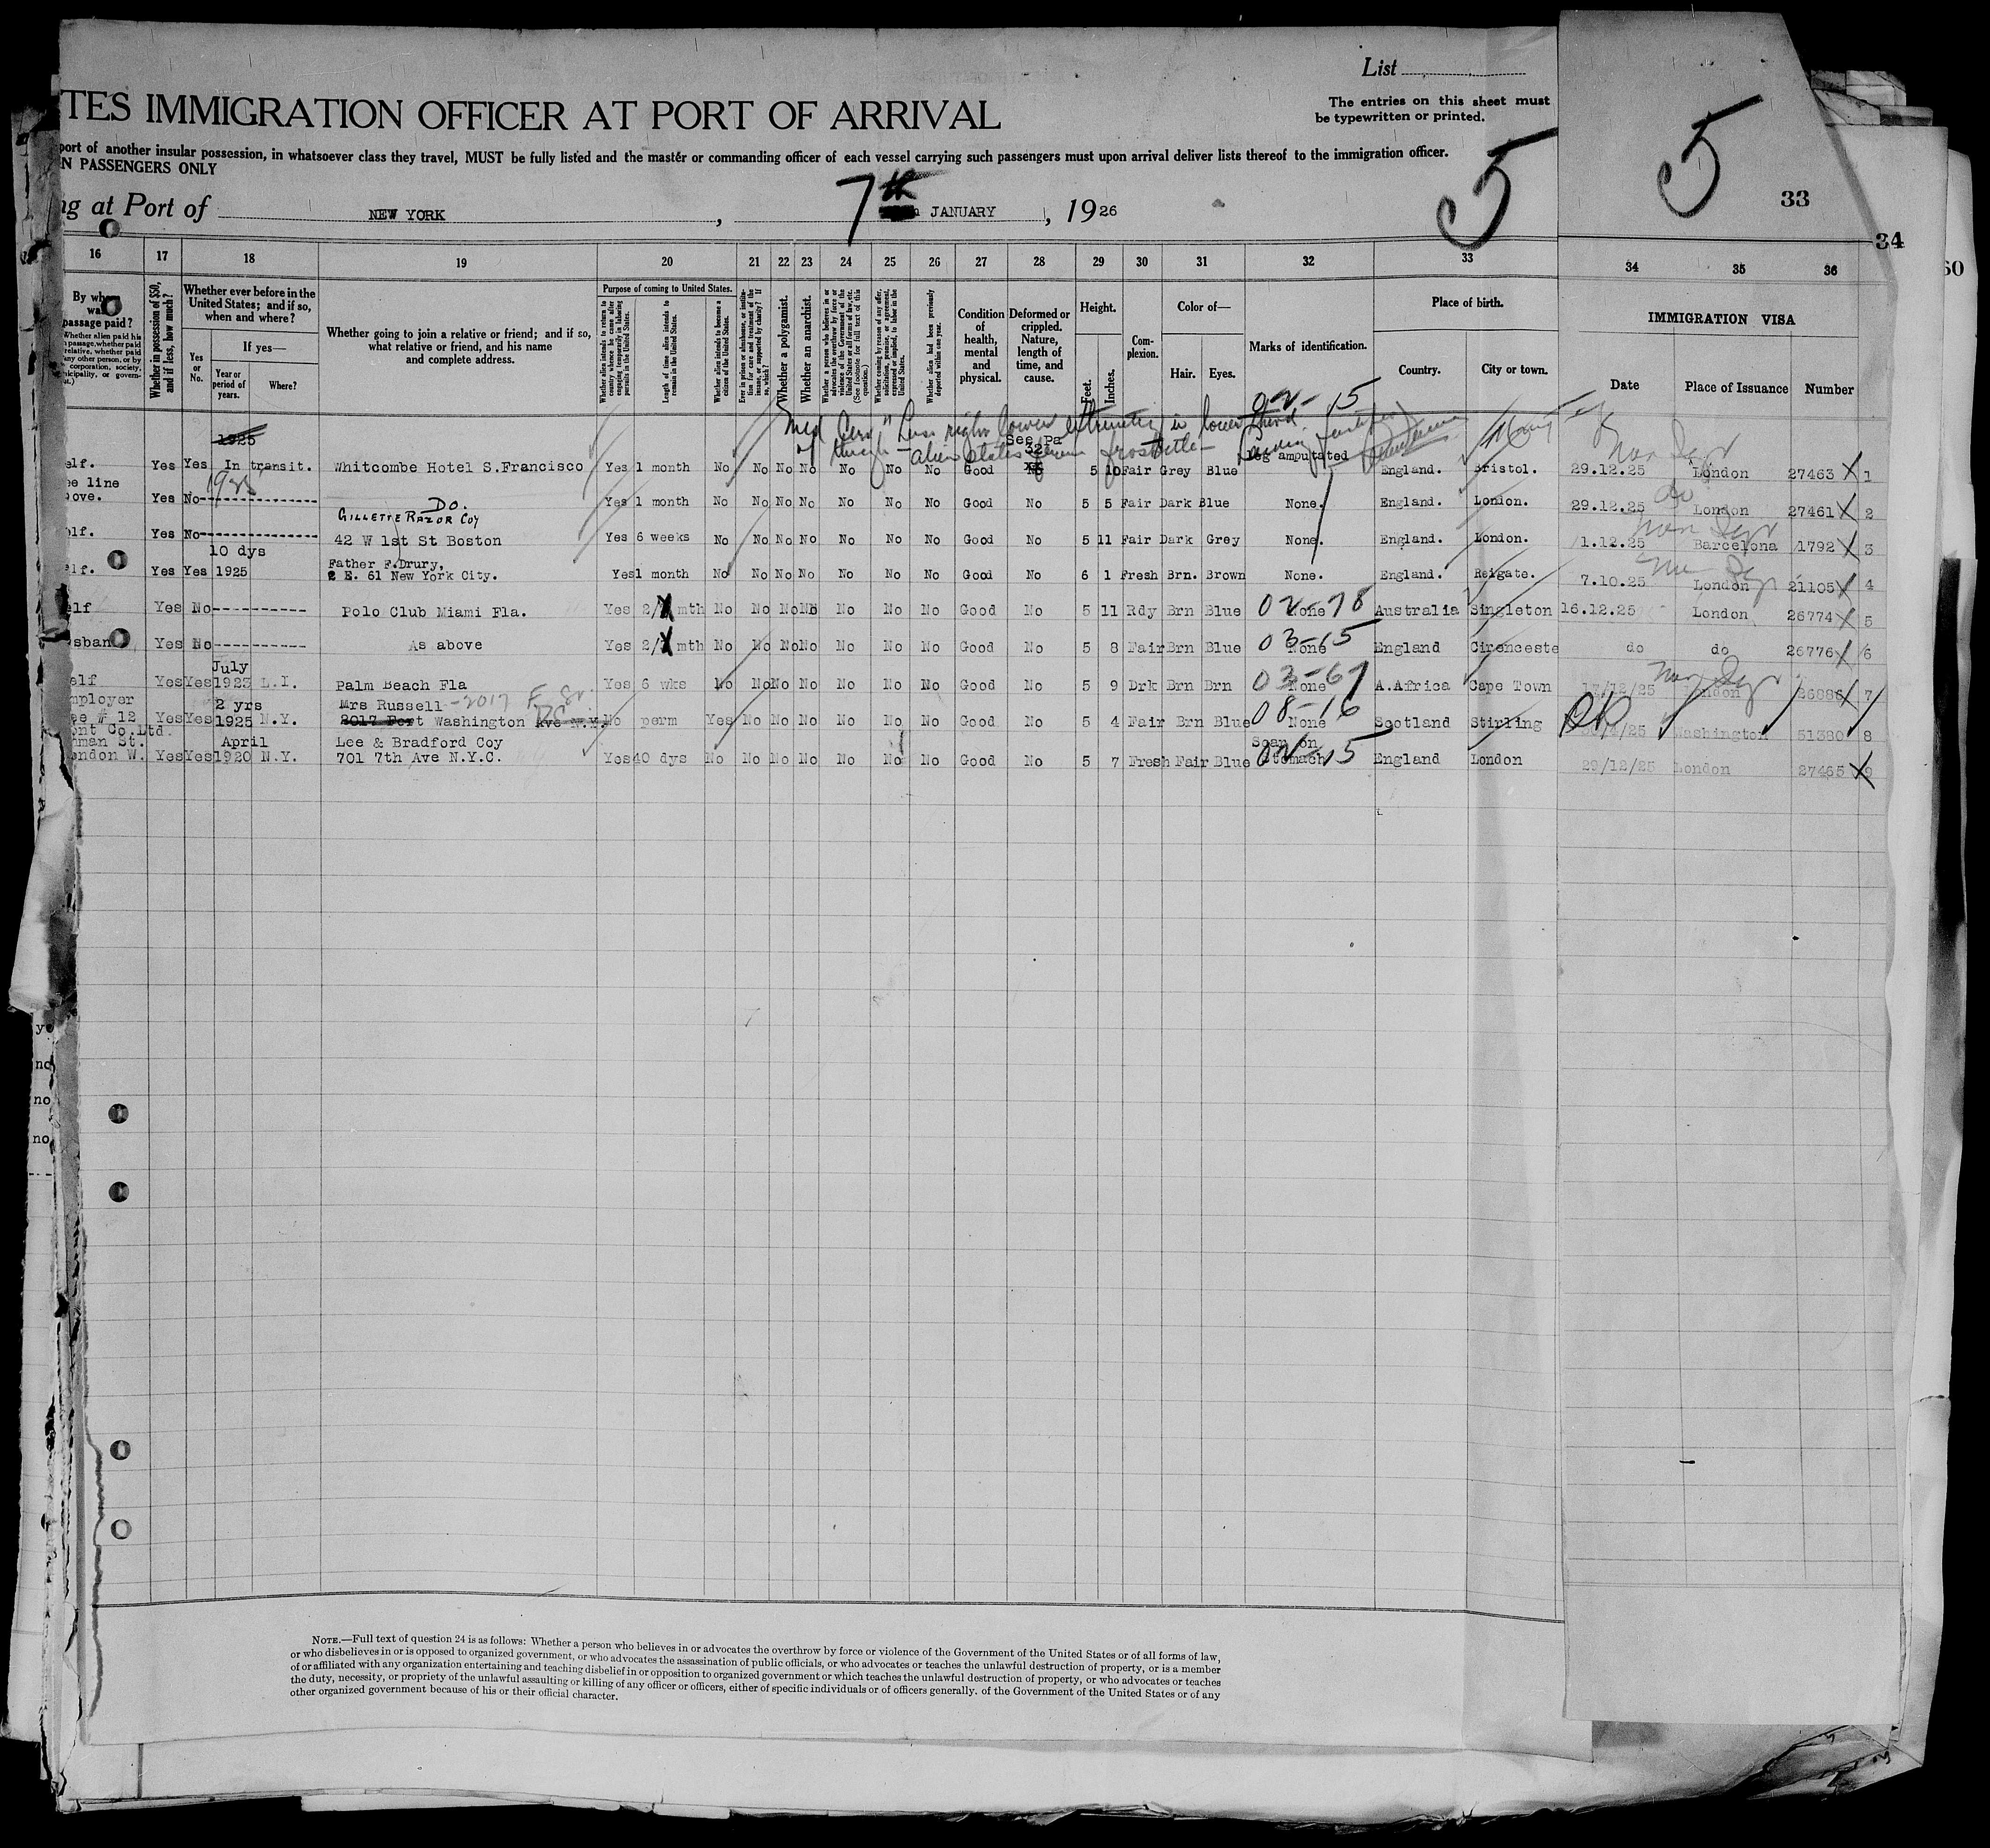 List
TES IMMIGRATION OFFICER AT PORT OF ARRIVAL
The entries on this sheet must
be typewritten or printed.
port of another insular possession, in whatsoever class they travel, MUST be fully listed and the master or commanding officer of each vessel carrying such passengers must upon arrival deliver lists thereof to the immigration officer.
N PASSENGERS ONLY
5 5 33
ng at Port of NEW YORK , 7th JANUARY , 1926
34
60
16 17 18 19 20 21 22 23 24 25 26 27 28 29 30 31 32 33 34 35 36
By whom was passage paid?
Whether in possession of $50, and if less, how much?
Whether ever before in the United States; and if so, when and where?
Yes or No.
If yes—
Year or period of years.
Where?
Whether going to join a relative or friend; and if so, what relative or friend, and his name and complete address.
Purpose of coming to United States.
Whether alien intends to return to country whence he came after engaging temporarily in laboring pursuits in the United States.
Length of time alien intends to remain in the United States.
Whether alien intends to become a citizen of the United States.
Whether a polygamist.
Whether an anarchist.
Whether alien had been previously deported within one year.
Condition of health, mental and physical.
Deformed or crippled. Nature, length of time, and cause.
Height.
Feet. Inches.
Complexion.
Color of—
Hair. Eyes.
Marks of identification.
Place of birth.
Country. City or town.
IMMIGRATION VISA
Date Place of Issuance Number
02-15
Med Cert "Loss right lower extremity in lower third
of thigh - alien states
1925 See Pa 32
elf. Yes Yes In transit. Whitcombe Hotel S.Francisco Yes 1 month No No No No No No No Good No 5 10 Fair Grey Blue Leg amputated England. Bristol. 29.12.25 London 27463 1
ee line 1925
ove. Yes No Do. Yes 1 month No No No No No No No Good No 5 5 Fair Dark Blue None. England. London. 29.12.25 do London 27461 2
GILLETTE RAZOR COY
elf. Yes No 42 W 1st St Boston Yes 6 weeks No No No No No No No Good No 5 11 Fair Dark Grey None. England. London. 1.12.25 Barcelona 1792 3
10 dys Father F.Drury,
elf. Yes Yes 1925 2 E. 61 New York City. Yes 1 month No No No No No No No Good No 6 1 Fresh Brn. Brown None. England. Reigate. 7.10.25 London 21105 4
elf Yes No Polo Club Miami Fla. Yes 2/ mth No No No No No No No Good No 5 11 Rdy Brn Blue None 02-78 Australia Singleton 16.12.25 London 26774 5
usband Yes No As above Yes 2/ mth No No No No No No No Good No 5 8 Fair Brn Blue None 03-15 England Cirenceste do do 26776 6
July
elf Yes Yes 1923 L.I. Palm Beach Fla Yes 6 wks No No No No No No No Good No 5 9 Drk Brn Brn None 03-67 A.Africa Cape Town 17/12/25 London 26886 7
mployer 2 yrs Mrs Russell -2017 F St. DC
ee # 12 Yes Yes 1925 N.Y. 2017 Fort Washington Ave N.Y. No perm Yes No No No No No No Good No 5 4 Fair Brn Blue None 08-16 Scotland Stirling OK /25 Washington 51380 8
ont Co.Ltd.
nman St. April Lee & Bradford Coy Scar on
ondon W. Yes Yes 1920 N.Y. 701 7th Ave N.Y.C. Yes 40 dys No No No No No No No Good No 5 7 Fresh Fair Blue stomach 02-15 England London 29/12/25 London 27465 9
no
no
no
NOTE.—Full text of question 24 is as follows: Whether a person who believes in or advocates the overthrow by force or violence of the Government of the United States or of all forms of law,
or who disbelieves in or is opposed to organized government, or who advocates the assassination of public officials, or who advocates or teaches the unlawful destruction of property, or is a member
of or affiliated with any organization entertaining and teaching disbelief in or opposition to organized government or which teaches the unlawful destruction of property, or who advocates or teaches
the duty, necessity, or propriety of the unlawful assaulting or killing of any officer or officers, either of specific individuals or of officers generally. of the Government of the United States or of any
other organized government because of his or their official character.